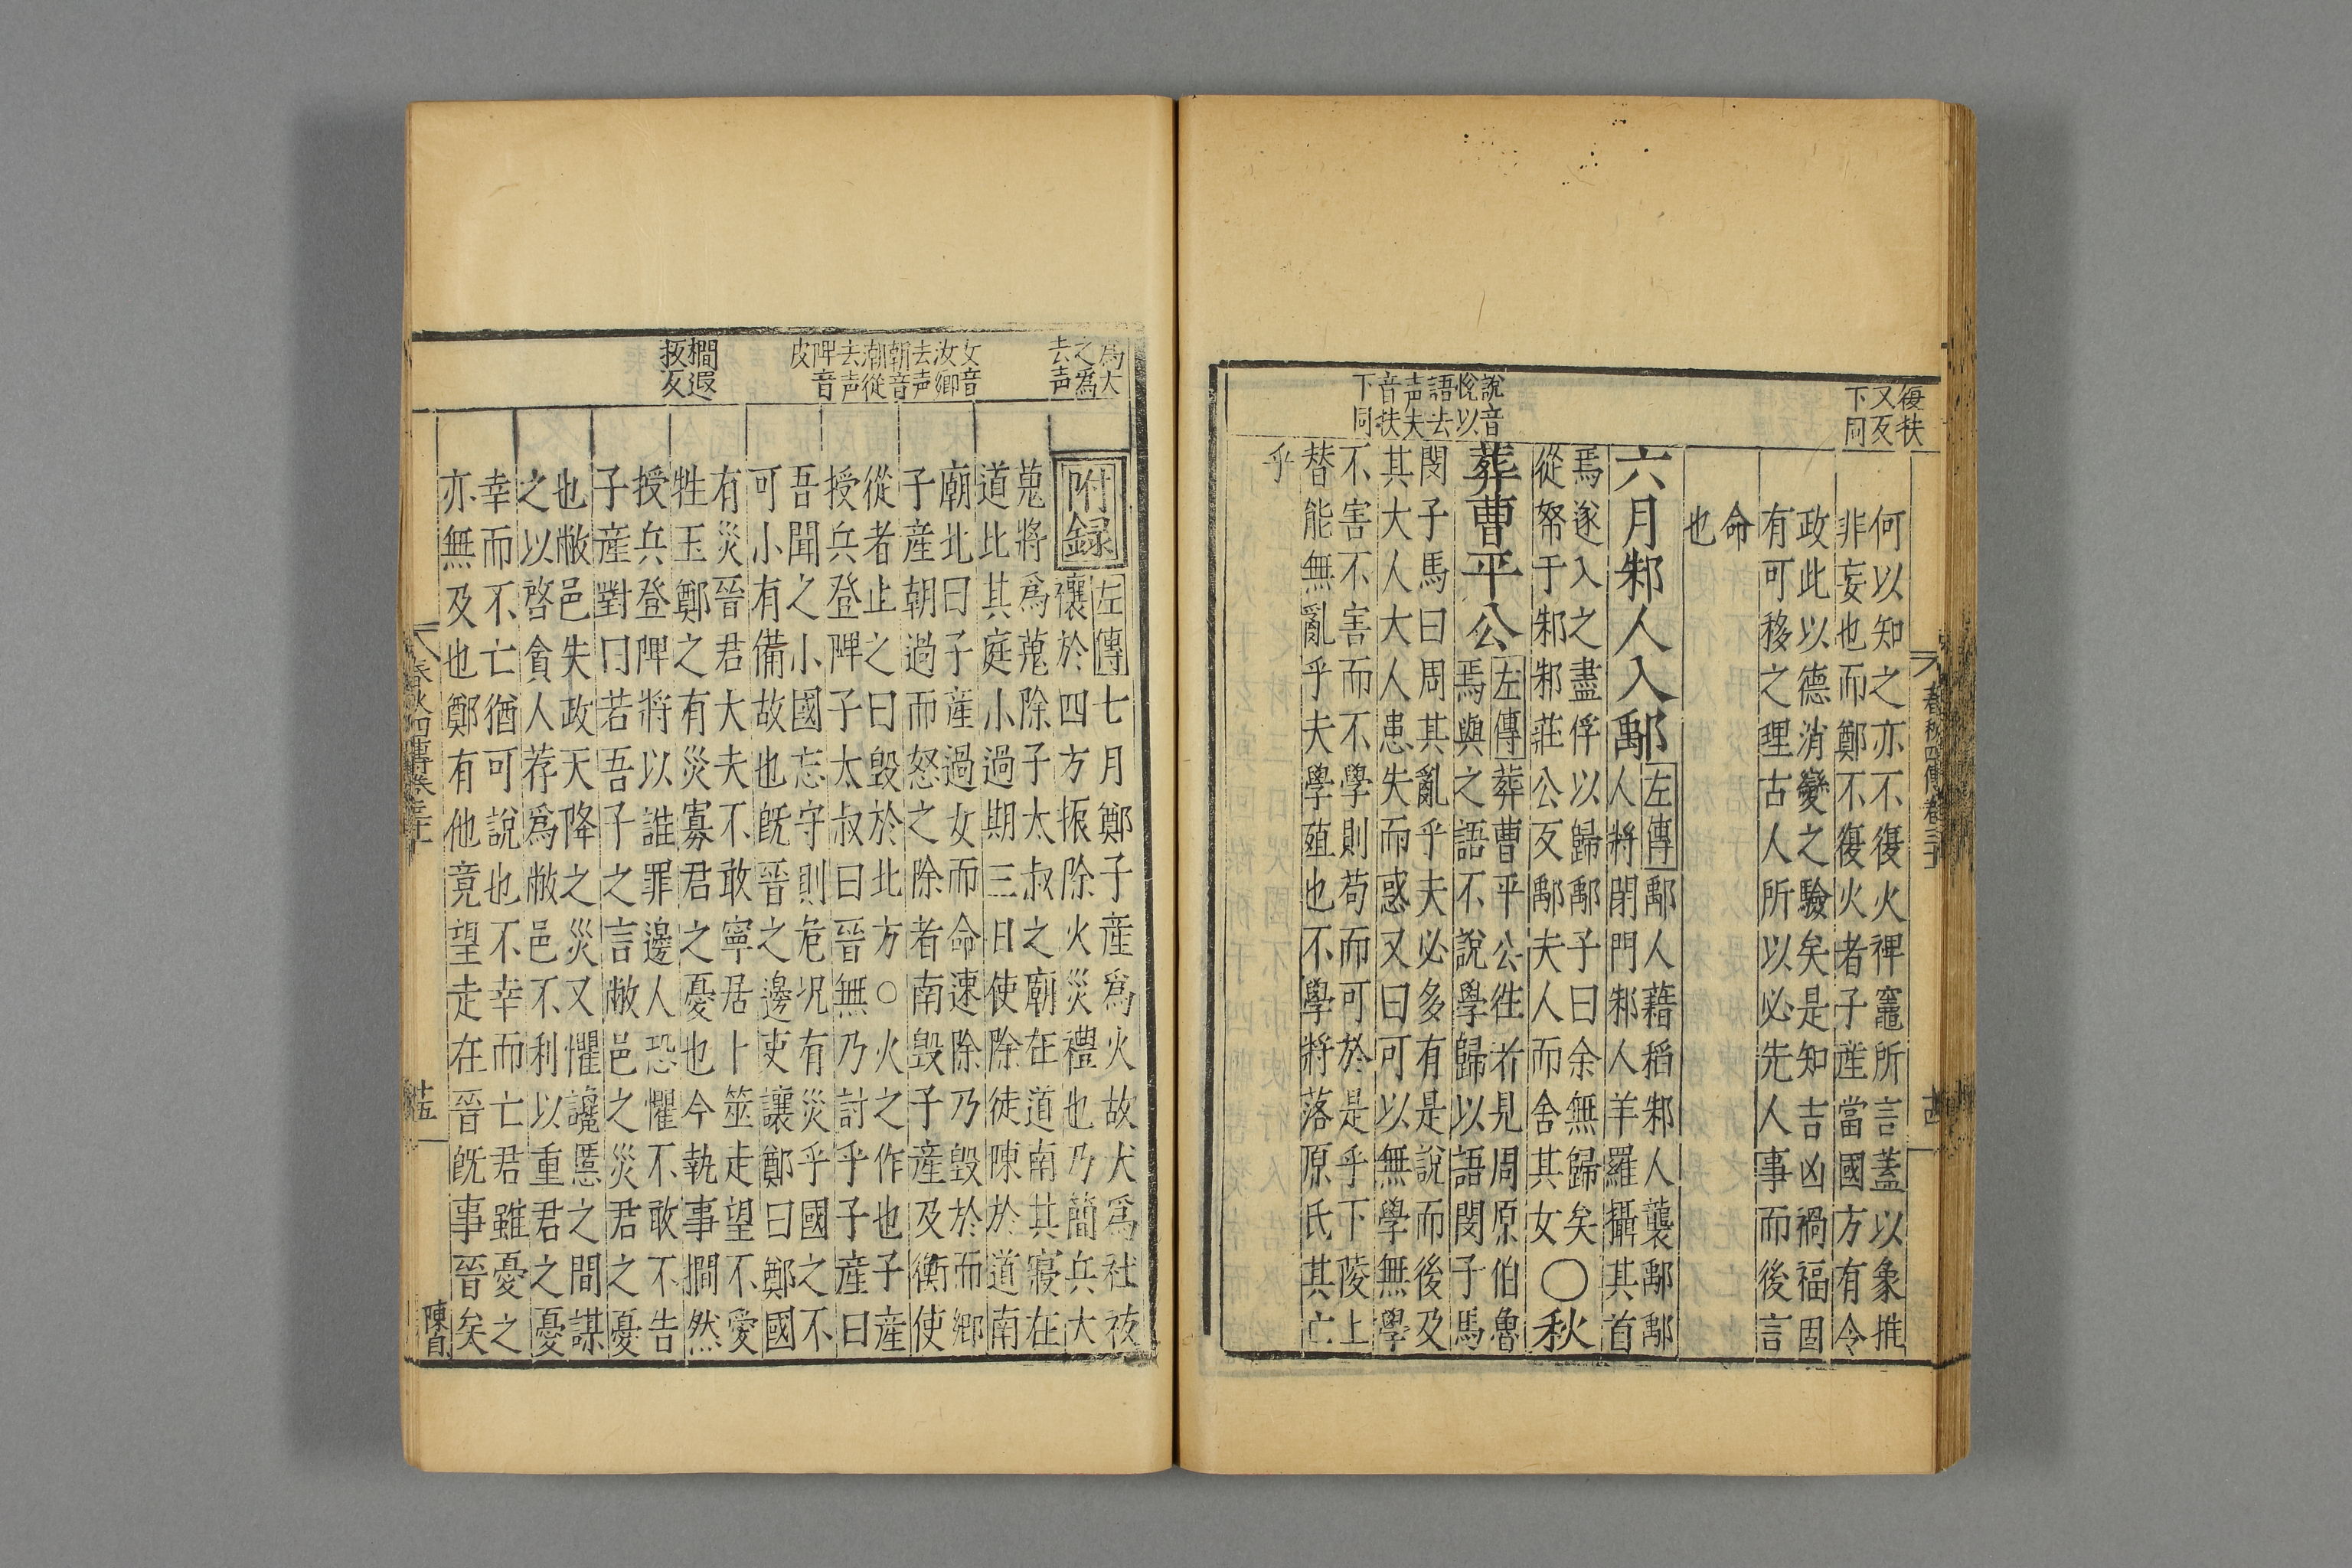 復扶
又反
下同
說音
悅以
語去
声夫
音扶
下同
春秋四傳卷三十
十四
何以知之亦不復火裨竈所言蓋以象推
非妄也而鄭不復火者子產當國方有令
政此以德消變之驗矣是知吉凶禍福固
有可移之理古人所以必先人事而後言
命
也
六月邾人入鄅
左傳鄅人藉稻邾人襲鄅鄅
人將閉門邾人羊羅攝其首
焉遂入之盡俘以歸鄅子曰余無歸矣
從帑于邾邾莊公反鄅夫人而舍其女
○秋
葬曹平公
左傳葬曹平公徃者見周原伯魯
焉與之語不說學歸以語閔子馬
閔子馬曰周其亂乎夫必多有是說而後及
其大人大人患失而惑又曰可以無學無學
不害不害而不學則苟而可於是乎下陵上
替能無亂乎夫學殖也不學將落原氏其亡
乎
為大
之為
去声
女音
汝鄉
去声
朝音
潮從
去声
陴音
皮
橺遐
扳反
附録
左傳七月鄭子產爲火故大爲社祓
禳於四方振除火災禮也乃簡兵大
蒐將爲蒐除子太叔之廟在道南其寢在
道北其庭小過期三日使除徒陳於道南
廟北曰子產過女而命速除乃毀於而鄉
子產朝過而怒之除者南毀子產及衡使
從者止之曰毀於北方○火之作也子產
授兵登陴子太叔曰晉無乃討乎子產曰
吾聞之小國忘守則危況有災乎國之不
可小有備故也旣晉之邊吏讓鄭曰鄭國
有災晉君大夫不敢寧居卜筮走望不愛
牲玉鄭之有災寡君之憂也今執事撊然
授兵登陴將以誰罪邊人恐懼不敢不告
子產對曰若吾子之言敝邑之災君之憂
也敝邑失政天降之災又懼讒慝之間謀
之以啓貪人荐爲敝邑不利以重君之憂
幸而不亡猶可說也不幸而亡君雖憂之
亦無及也鄭有他竟望走在晉旣事晉矣
春秋四傳卷三十
十五